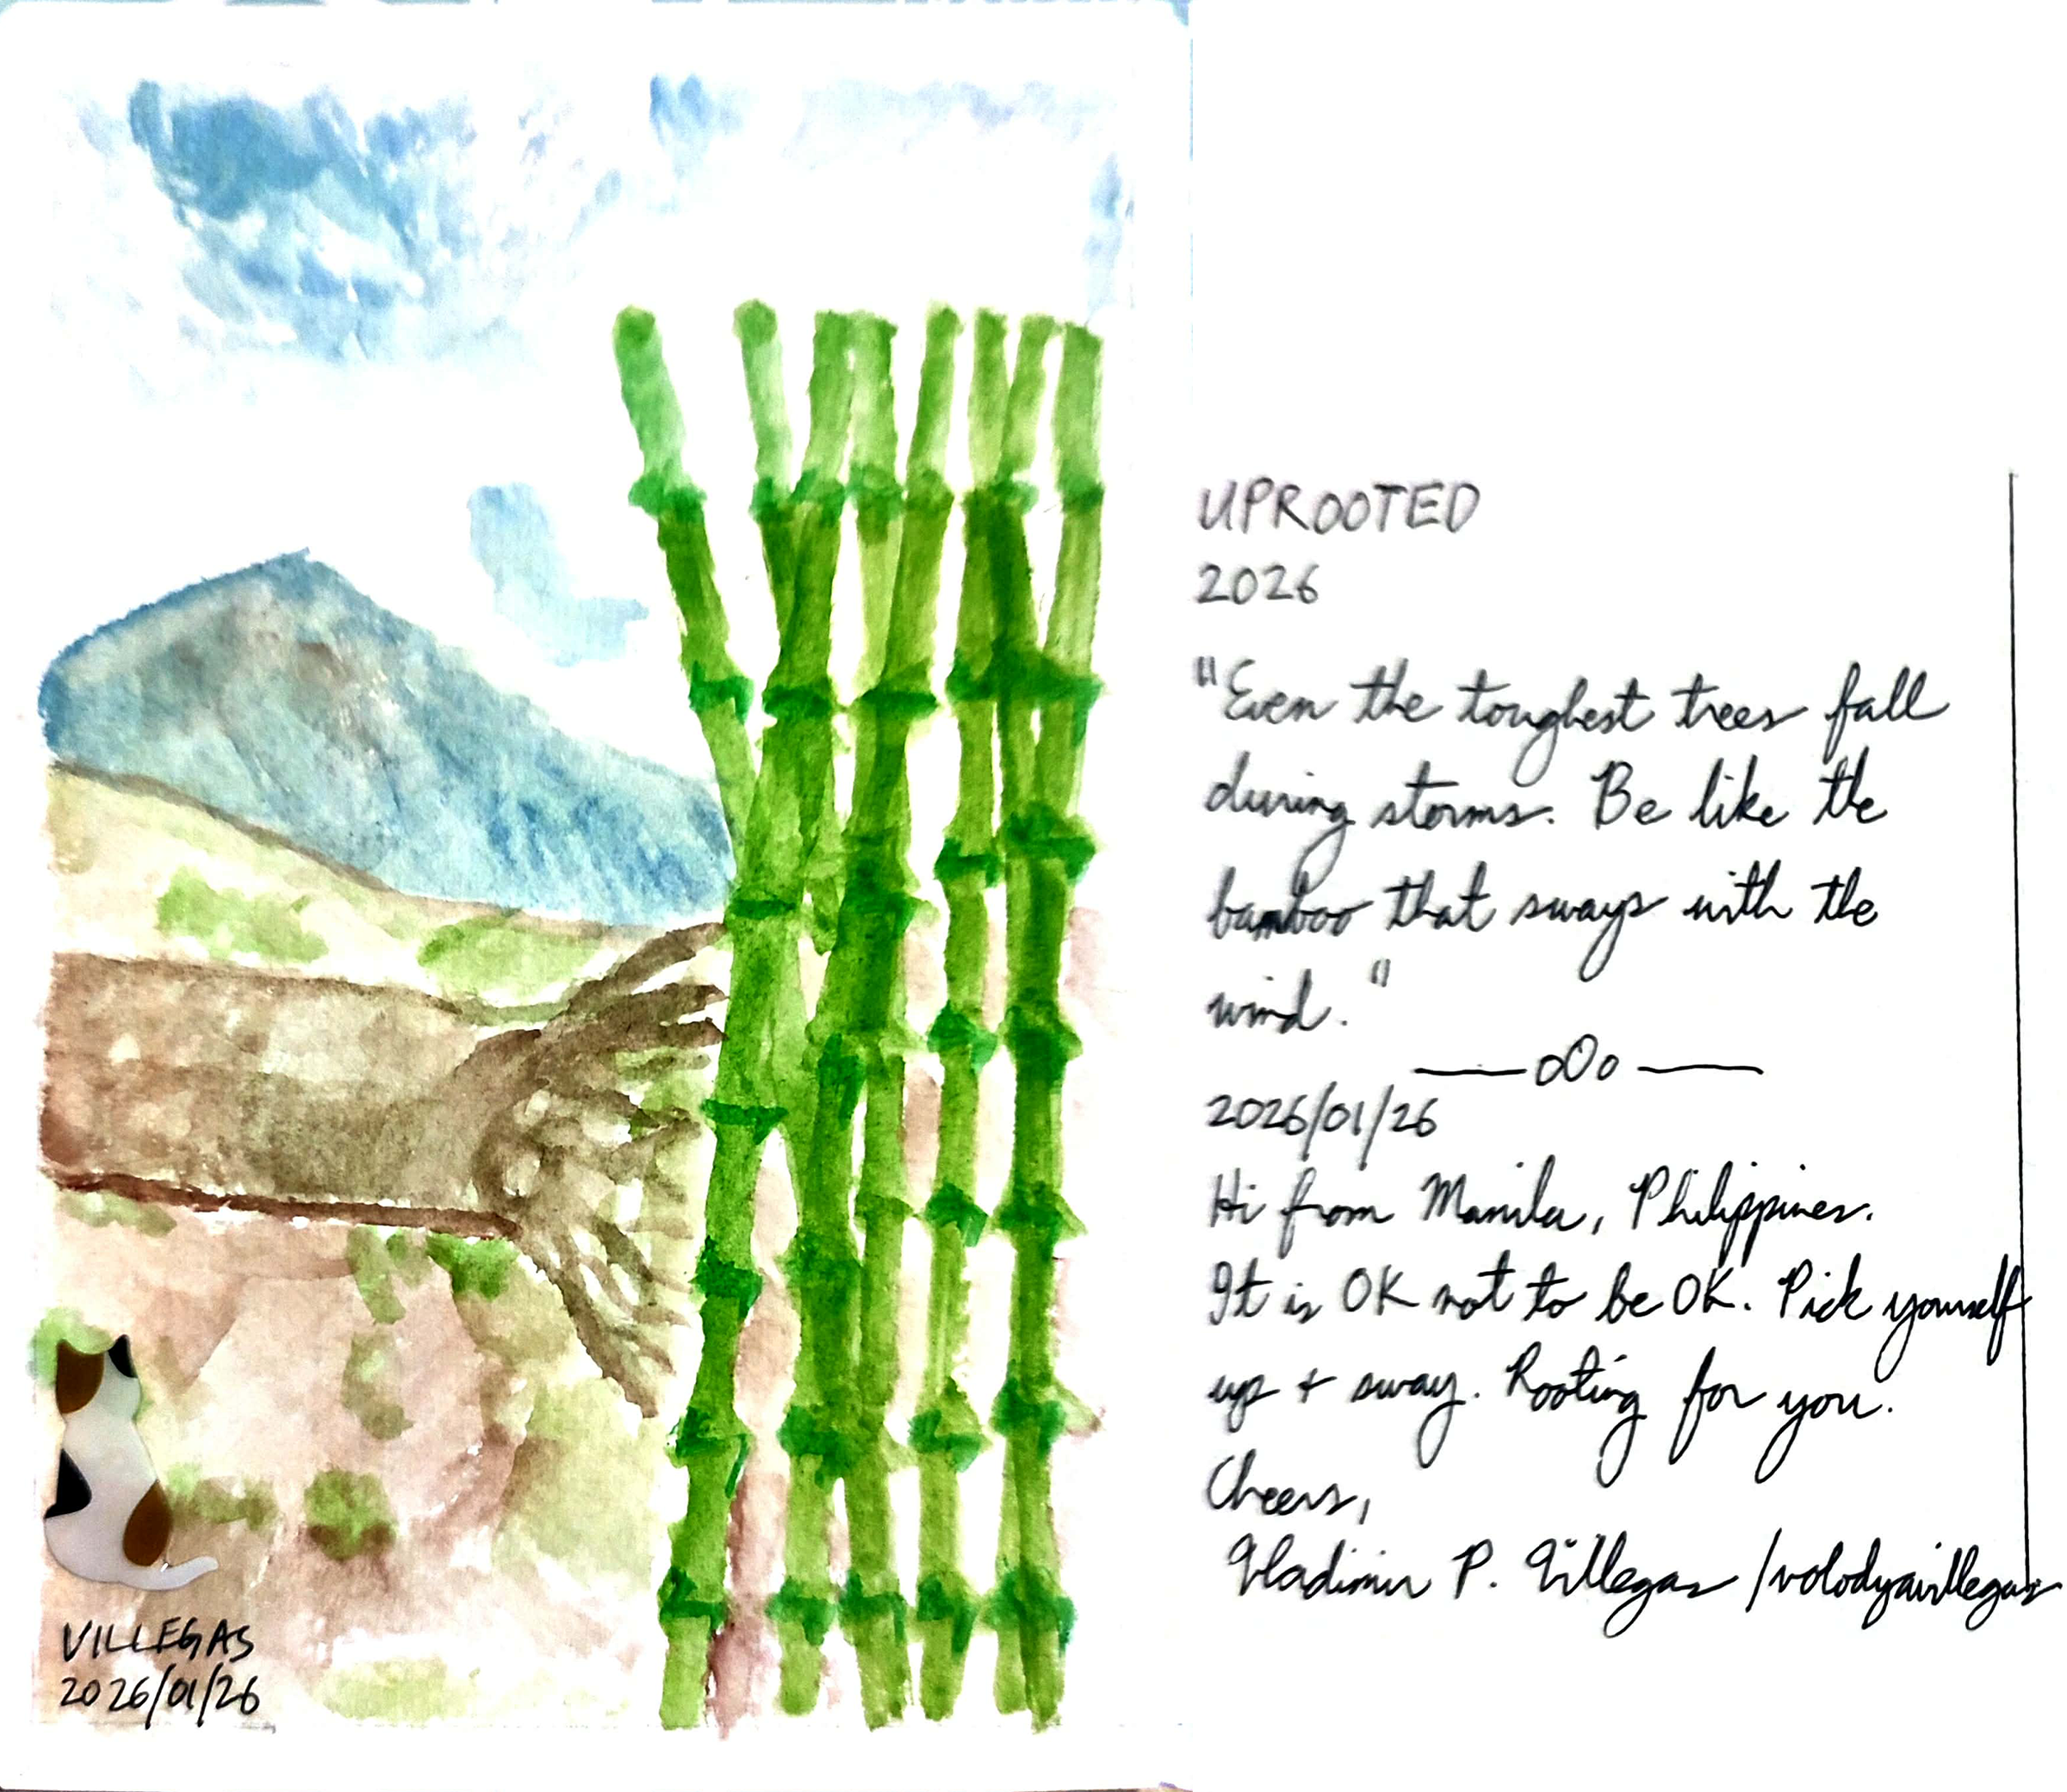 VILLEGAS
2026/01/26
UPROOTED
2026
"Even the toughest trees fall
during storms. Be like the
bamboo that sways with the
wind."
—oOo—
2026/01/26
Hi from Manila, Philippines.
It is OK not to be OK. Pick yourself
up + sway. Rooting for you.
Cheers,
Vladimir P. Villegas /volodyavillegas